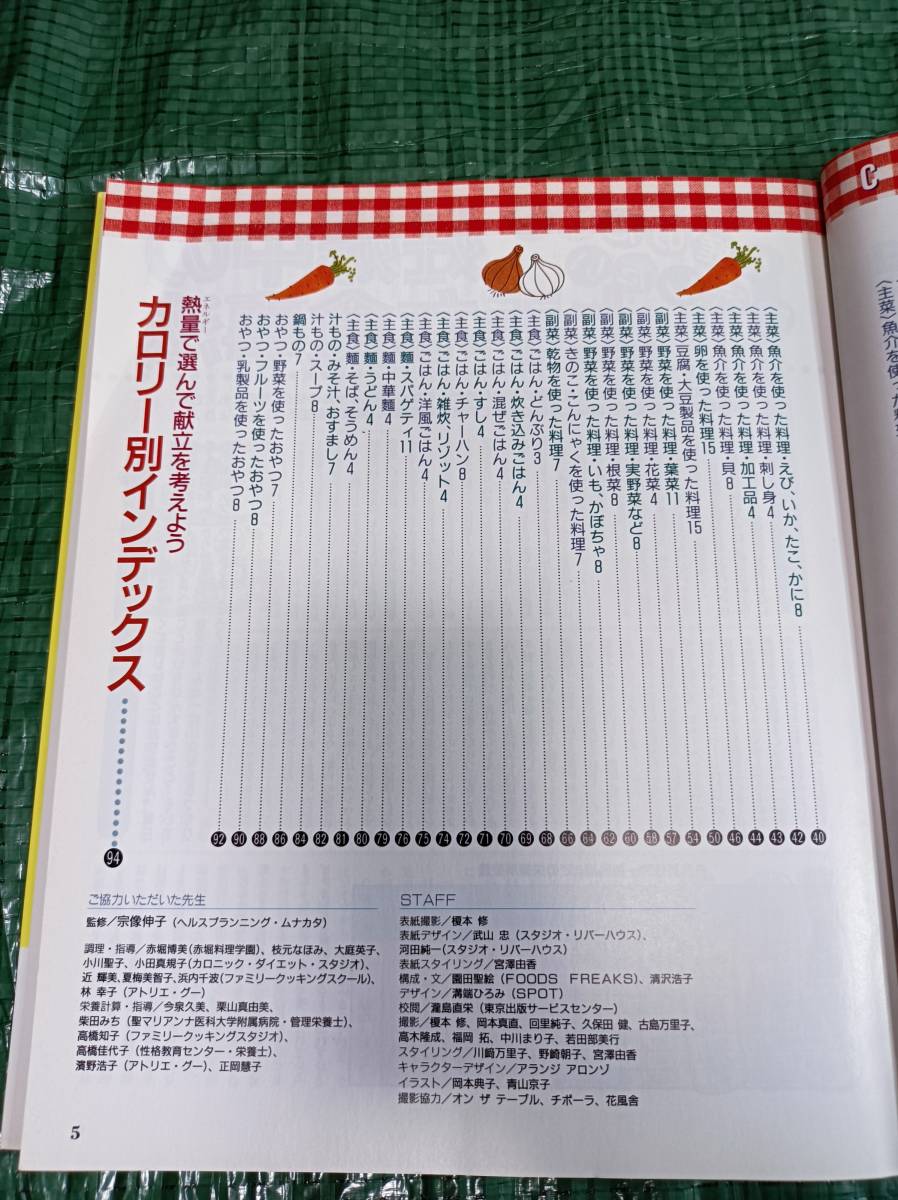 C
〈主菜〉魚介を使っ
〈主菜〉魚介を使った料理・えび、いか、たこ、かに8 40
〈主菜〉魚介を使った料理・刺し身4 42
〈主菜〉魚介を使った料理・加工品4 43
〈主菜〉魚介を使った料理・貝8 44
〈主菜〉卵を使った料理15 46
〈主菜〉豆腐・大豆製品を使った料理15 50
〈副菜〉野菜を使った料理・葉菜11 54
〈副菜〉野菜を使った料理・花菜4 57
〈副菜〉野菜を使った料理・実野菜など8 58
〈副菜〉野菜を使った料理・根菜8 60
〈副菜〉野菜を使った料理・いも、かぼちゃ8 62
〈副菜〉きのこ・こんにゃくを使った料理7 64
〈副菜〉乾物を使った料理7 66
〈主食〉ごはん・どんぶり3 68
〈主食〉ごはん・炊き込みごはん4 69
〈主食〉ごはん・混ぜごはん4 70
〈主食〉ごはん・すし4 71
〈主食〉ごはん・チャーハン8 72
〈主食〉ごはん・雑炊、リゾット4 74
〈主食〉ごはん・洋風ごはん4 75
〈主食〉麺・スパゲティ11 76
〈主食〉麺・中華麺4 79
〈主食〉麺・うどん4 80
〈主食〉麺・そば、そうめん4 81
汁もの・みそ汁、おすまし7 82
汁もの・スープ8 84
鍋もの7 86
おやつ・野菜を使ったおやつ7 88
おやつ・フルーツを使ったおやつ8 90
おやつ・乳製品を使ったおやつ8 92
エネルギー
熱量で選んで献立を考えよう
カロリー別インデックス 94
ご協力いただいた先生
監修／宗像伸子（ヘルスプランニング・ムナカタ）
調理・指導／赤堀博美（赤堀料理学園）、枝元なほみ、大庭英子、
小川聖子、小田真規子（カロニック・ダイエット・スタジオ）、
近 輝美、夏梅美智子、浜内千波（ファミリークッキングスクール）、
林 幸子（アトリエ・グー）
栄養計算・指導／今泉久美、栗山真由美、
柴田みち（聖マリアンナ医科大学附属病院・管理栄養士）、
高橋知子（ファミリークッキングスタジオ）、
高橋佳代子（性格教育センター・栄養士）、
濱野浩子（アトリエ・グー）、正岡慧子
STAFF
表紙撮影／榎本 修
表紙デザイン／武山 忠（スタジオ・リバーハウス）、
河田純一（スタジオ・リバーハウス）
表紙スタイリング／宮澤由香
構成・文／園田聖絵（FOODS FREAKS）、清沢浩子
デザイン／溝端ひろみ（SPOT）
校閲／瀧島直栄（東京出版サービスセンター）
撮影／榎本 修、岡本真直、回里純子、久保田 健、古島万里子、
高木隆成、福岡 拓、中川まり子、若田部美行
スタイリング／川﨑万里子、野崎朝子、宮澤由香
キャラクターデザイン／アランジ アロンゾ
イラスト／岡本典子、青山京子
撮影協力／オン ザ テーブル、チポーラ、花風舎
5